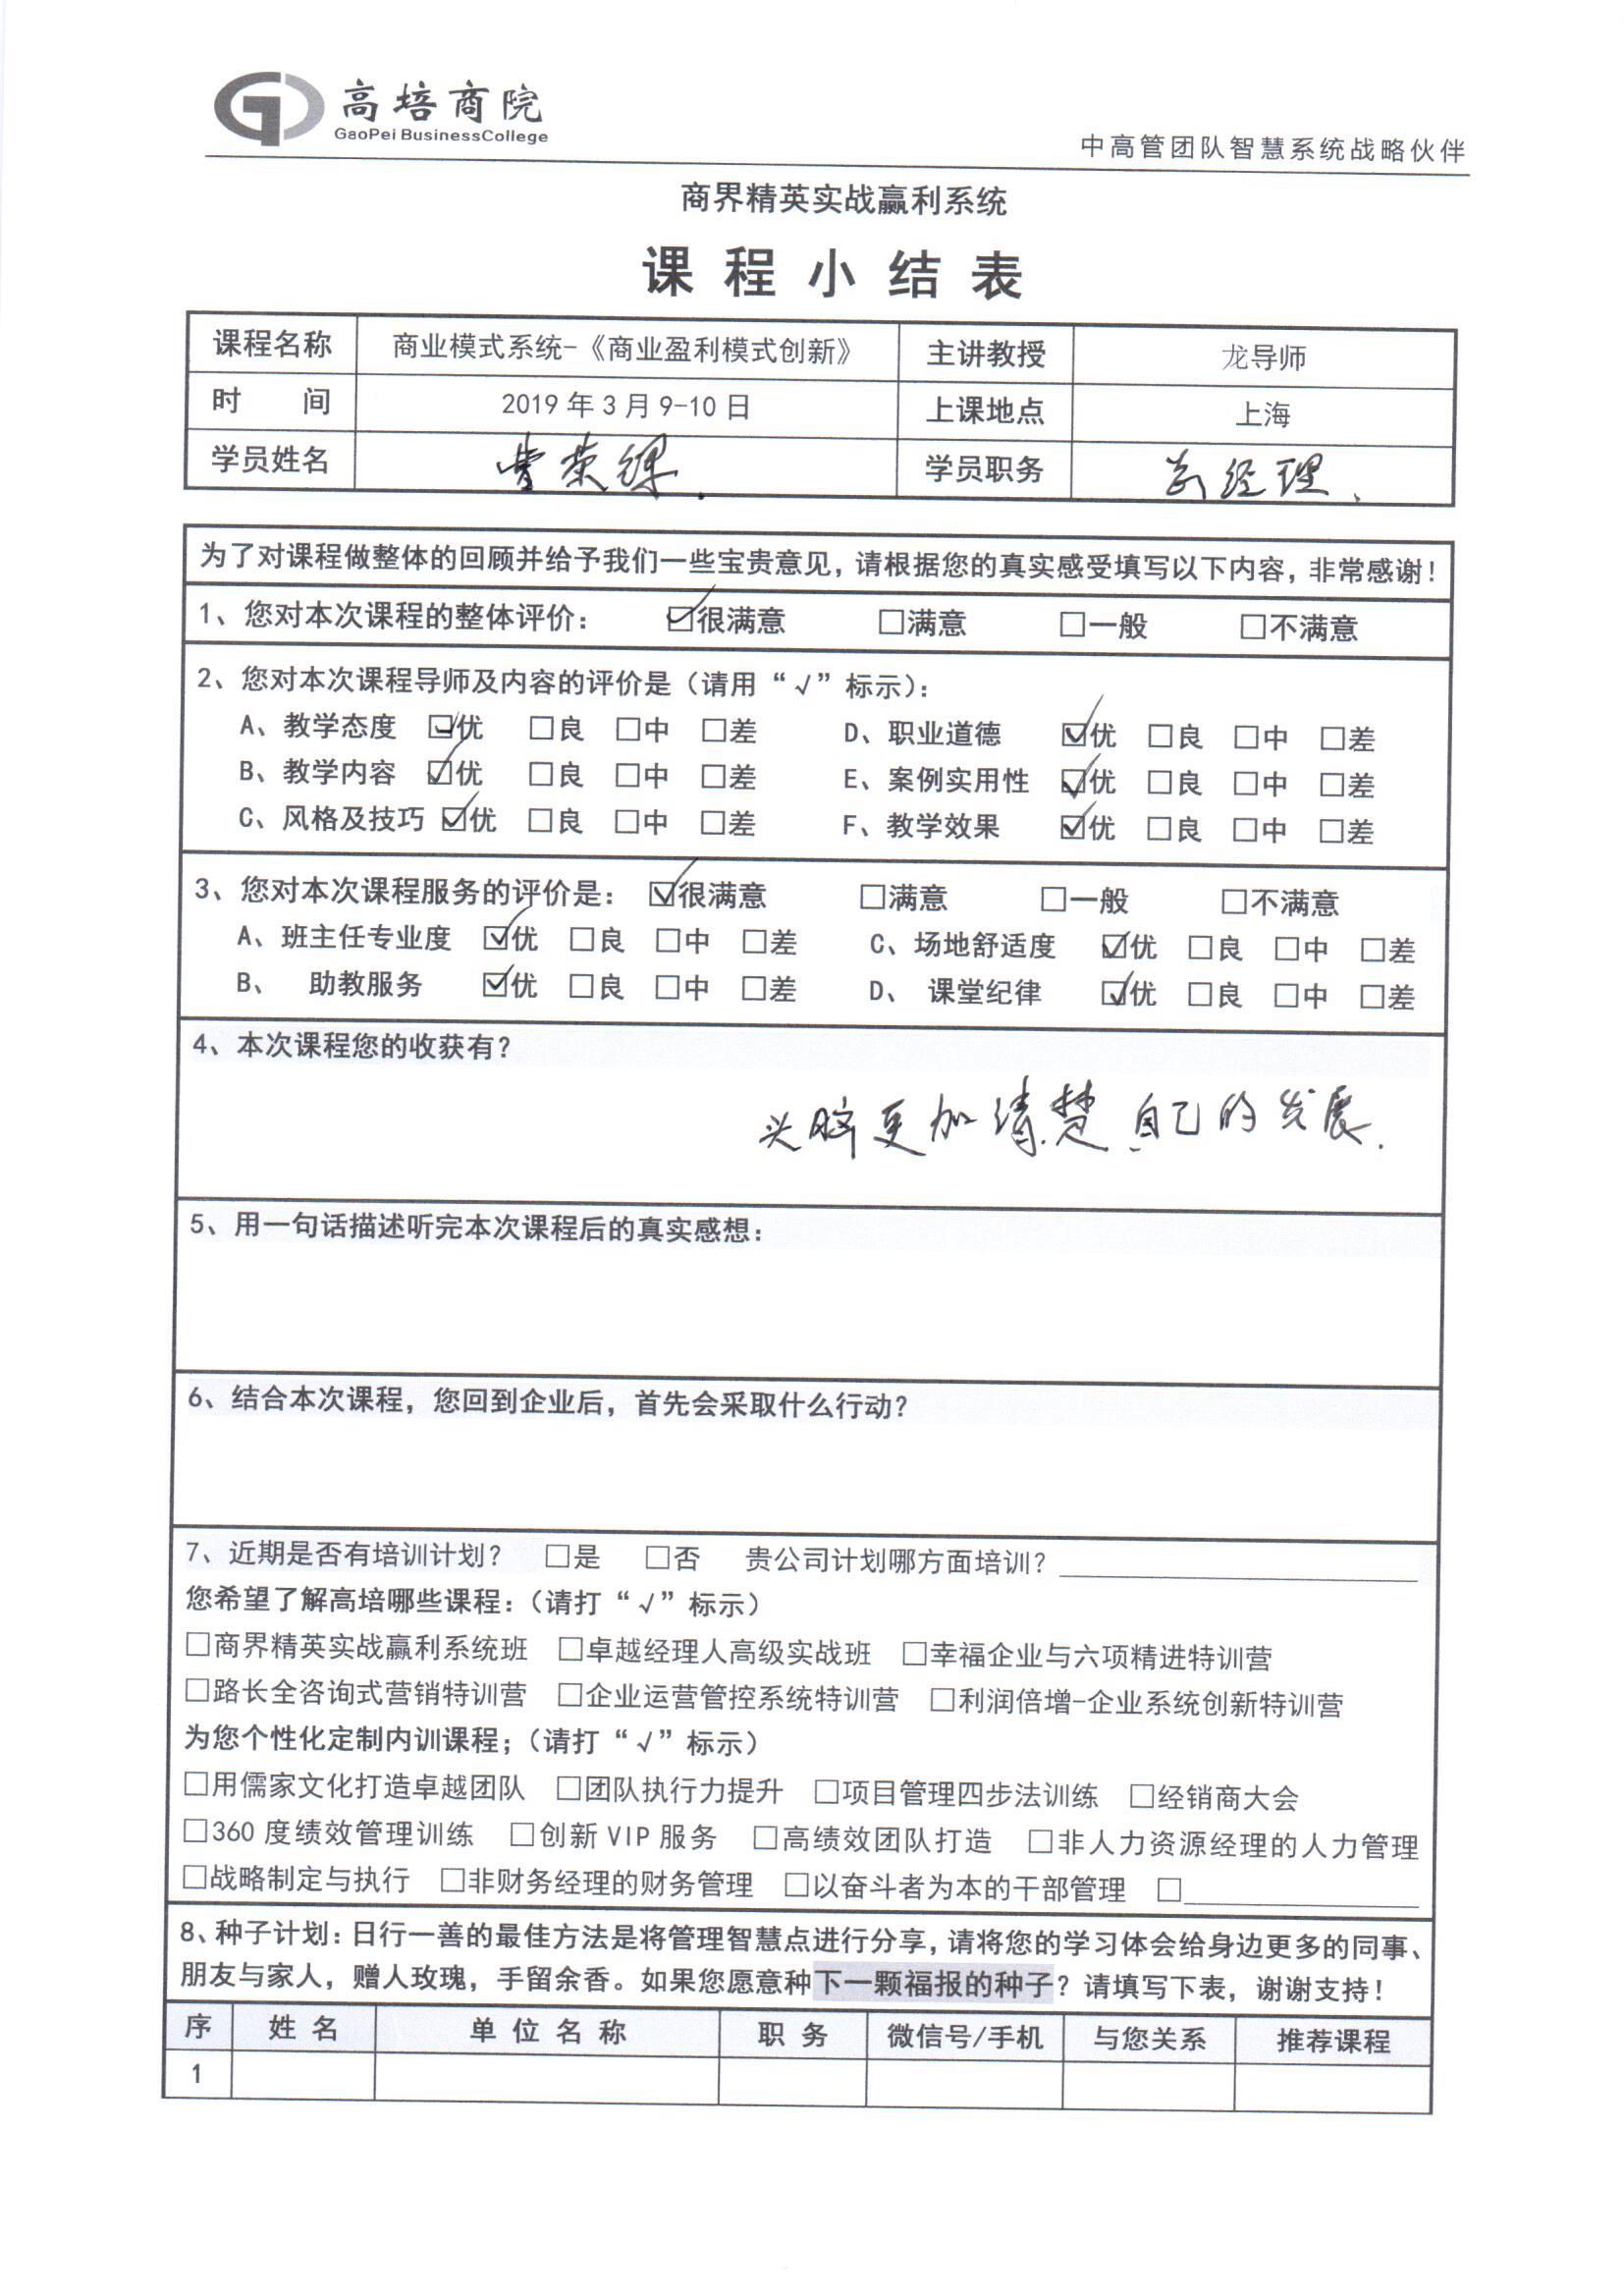 高培商院
GaoPei BusinessCollege
中高管团队智慧系统战略伙伴
商界精英实战赢利系统
课程小结表
课程名称 商业模式系统-《商业盈利模式创新》 主讲教授 龙导师
时 间 2019年3月9-10日 上课地点 上海
学员姓名 学员职务 经理
为了对课程做整体的回顾并给予我们一些宝贵意见，请根据您的真实感受填写以下内容，非常感谢！
1、您对本次课程的整体评价： ☑很满意 □满意 □一般 □不满意
2、您对本次课程导师及内容的评价是（请用“√”标示）：
A、教学态度 ☑优 □良 □中 □差 D、职业道德 ☑优 □良 □中 □差
B、教学内容 ☑优 □良 □中 □差 E、案例实用性 ☑优 □良 □中 □差
C、风格及技巧 ☑优 □良 □中 □差 F、教学效果 ☑优 □良 □中 □差
3、您对本次课程服务的评价是： ☑很满意 □满意 □一般 □不满意
A、班主任专业度 ☑优 □良 □中 □差 C、场地舒适度 ☑优 □良 □中 □差
B、 助教服务 ☑优 □良 □中 □差 D、 课堂纪律 ☑优 □良 □中 □差
4、本次课程您的收获有？
头脑更加清楚自己的发展.
5、用一句话描述听完本次课程后的真实感想：
6、结合本次课程，您回到企业后，首先会采取什么行动？
7、近期是否有培训计划？ □是 □否 贵公司计划哪方面培训？
您希望了解高培哪些课程：（请打“√”标示）
□商界精英实战赢利系统班 □卓越经理人高级实战班 □幸福企业与六项精进特训营
□路长全咨询式营销特训营 □企业运营管控系统特训营 □利润倍增-企业系统创新特训营
为您个性化定制内训课程；（请打“√”标示）
□用儒家文化打造卓越团队 □团队执行力提升 □项目管理四步法训练 □经销商大会
□360度绩效管理训练 □创新VIP服务 □高绩效团队打造 □非人力资源经理的人力管理
□战略制定与执行 □非财务经理的财务管理 □以奋斗者为本的干部管理 □
8、种子计划：日行一善的最佳方法是将管理智慧点进行分享，请将您的学习体会给身边更多的同事、
朋友与家人，赠人玫瑰，手留余香。如果您愿意种下一颗福报的种子？请填写下表，谢谢支持！
序 姓名 单位名称 职务 微信号/手机 与您关系 推荐课程
1